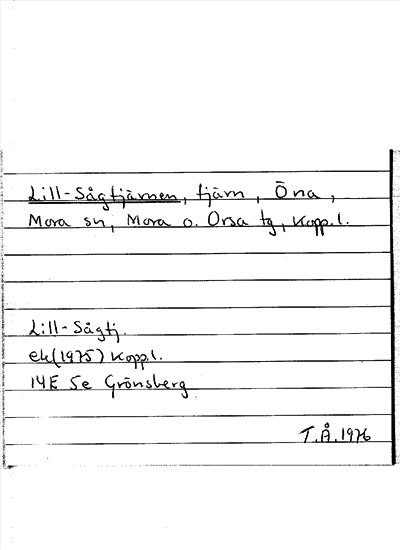 Lill-Sågtjärnen, tjärn, Öna,
Mora sn, Mora o. Orsa tg, Kopp.l.
Lill-Sågtj.
ek(1975) Kopp.l.
14E 5e Grönsberg
T.Å.1976